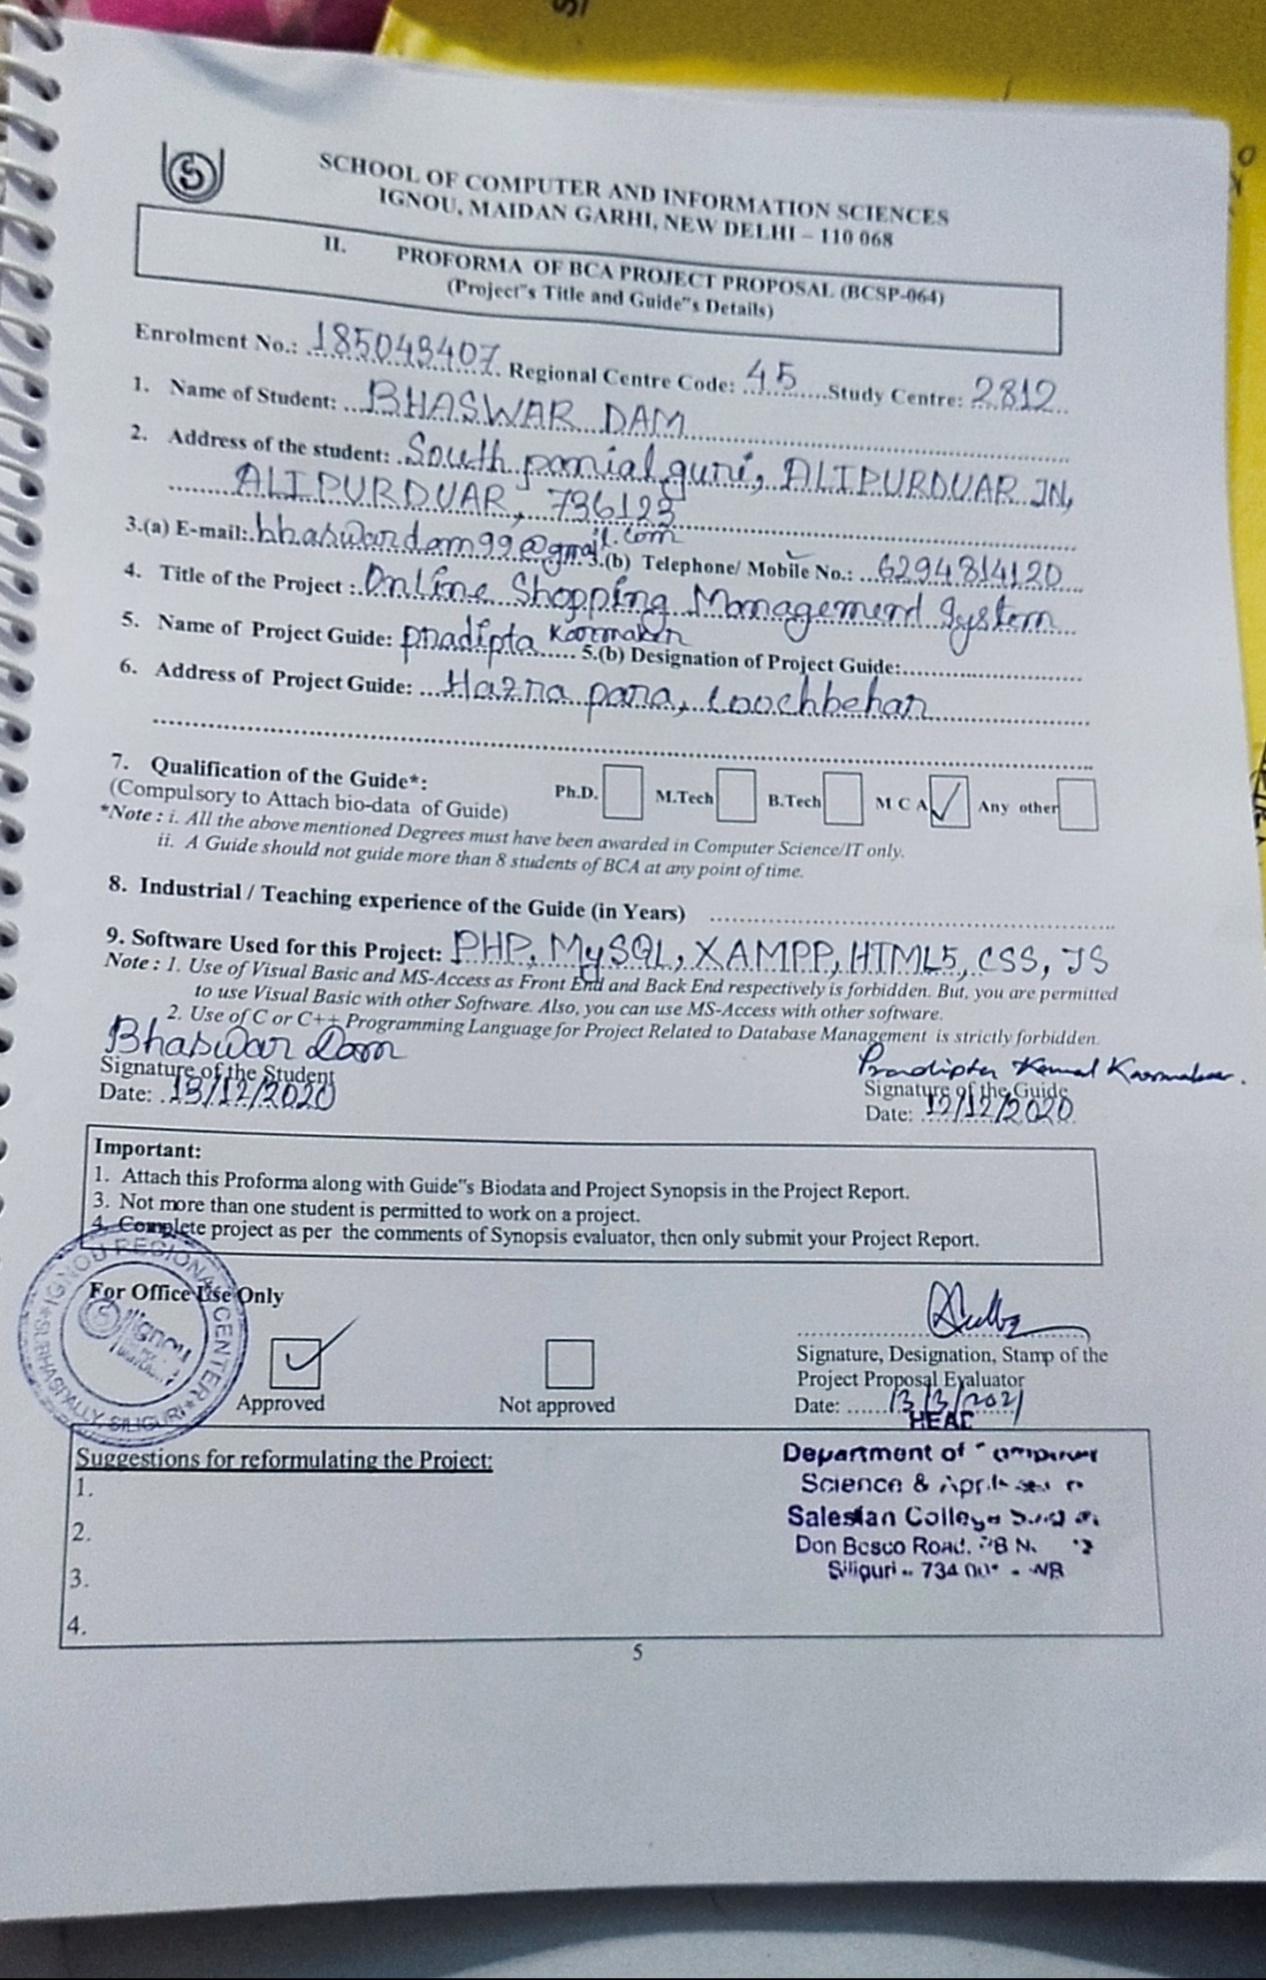 SCHOOL OF COMPUTER AND INFORMATION SCIENCES
IGNOU, MAIDAN GARHI, NEW DELHI – 110 068
II. PROFORMA OF BCA PROJECT PROPOSAL (BCSP-064)
(Project"s Title and Guide"s Details)
Enrolment No.: 185049407 Regional Centre Code: 45 Study Centre: 2812
1. Name of Student: BHASWAR DAM
2. Address of the student: South panialguri, ALIPURDUAR JN,
ALIPURDUAR, 736123
3.(a) E-mail: bhaswardam99@gmail.com 3.(b) Telephone/ Mobile No.: 6294814120
4. Title of the Project : Online Shopping Management System
5. Name of Project Guide: Pradipta Karmakar 5.(b) Designation of Project Guide:
6. Address of Project Guide: Hazra para, Coochbehar
7. Qualification of the Guide*: Ph.D. M.Tech B.Tech M C A ✓ Any other
(Compulsory to Attach bio-data of Guide)
*Note : i. All the above mentioned Degrees must have been awarded in Computer Science/IT only.
ii. A Guide should not guide more than 8 students of BCA at any point of time.
8. Industrial / Teaching experience of the Guide (in Years)
9. Software Used for this Project: PHP, MySQL, XAMPP, HTML5, CSS, JS
Note : 1. Use of Visual Basic and MS-Access as Front End and Back End respectively is forbidden. But, you are permitted
to use Visual Basic with other Software. Also, you can use MS-Access with other software.
2. Use of C or C++ Programming Language for Project Related to Database Management is strictly forbidden.
Bhaswar Dam Pradipta Kamal Karmakar.
Signature of the Student Signature of the Guide
Date: 13/12/2020 Date: 12/12/2020
Important:
1. Attach this Proforma along with Guide"s Biodata and Project Synopsis in the Project Report.
3. Not more than one student is permitted to work on a project.
4. Complete project as per the comments of Synopsis evaluator, then only submit your Project Report.
IGNOU REGIONAL CENTER
ignou
SUBHASPALLY, SILIGURI
For Office Use Only
✓
Signature, Designation, Stamp of the
Project Proposal Evaluator
Approved Not approved Date: 13/3/2021
HEAD
Suggestions for reformulating the Project:
Department of Computer
Science &
Salesian College
Don Bosco Road,
Siliguri - 734 - WB
1.
2.
3.
4.
5